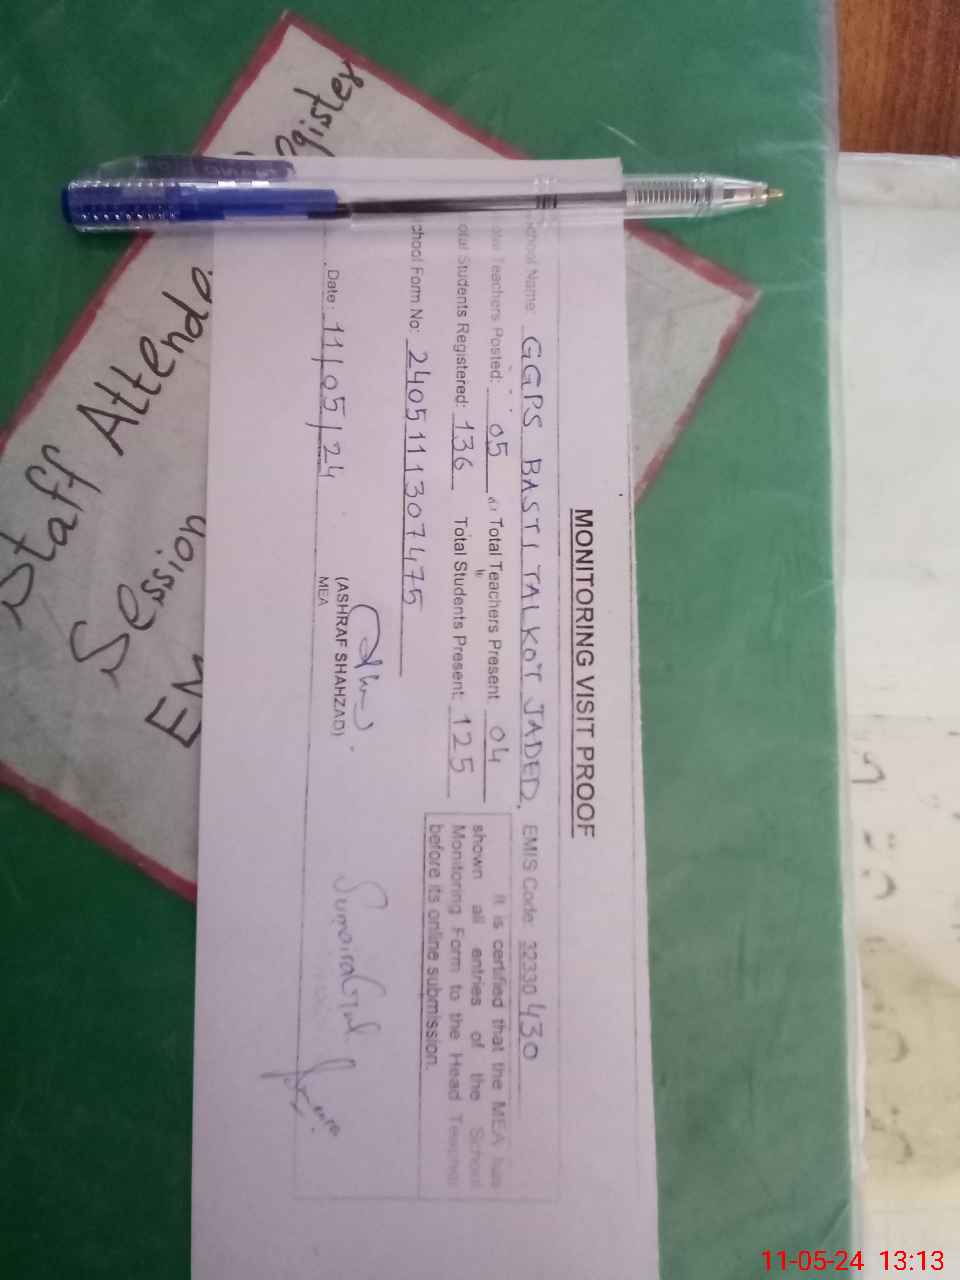 MONITORING VISIT PROOF
School Name: GGPS BASTI TALKOT JADED, EMIS Code: 32330430
Total Teachers Posted: 05 Total Teachers Present 04
Total Students Registered: 136 Total Students Present: 125
School Form No: 2405111307475
It is certified that the MEA has
shown all entries of the School
Monitoring Form to the Head Teacher
before its online submission.
Date: 11/05/24
(ASHRAF SHAHZAD)
MEA
Sumaira Gul
Staff Attend
Register
Session
11-05-24 13:13